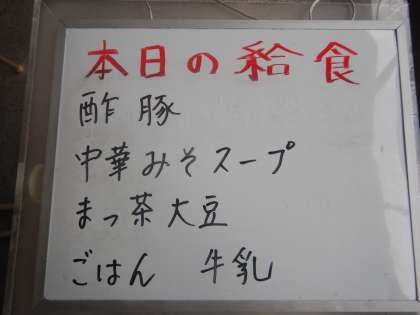 本日の給食
酢豚
中華みそスープ
まっ茶大豆
ごはん 牛乳